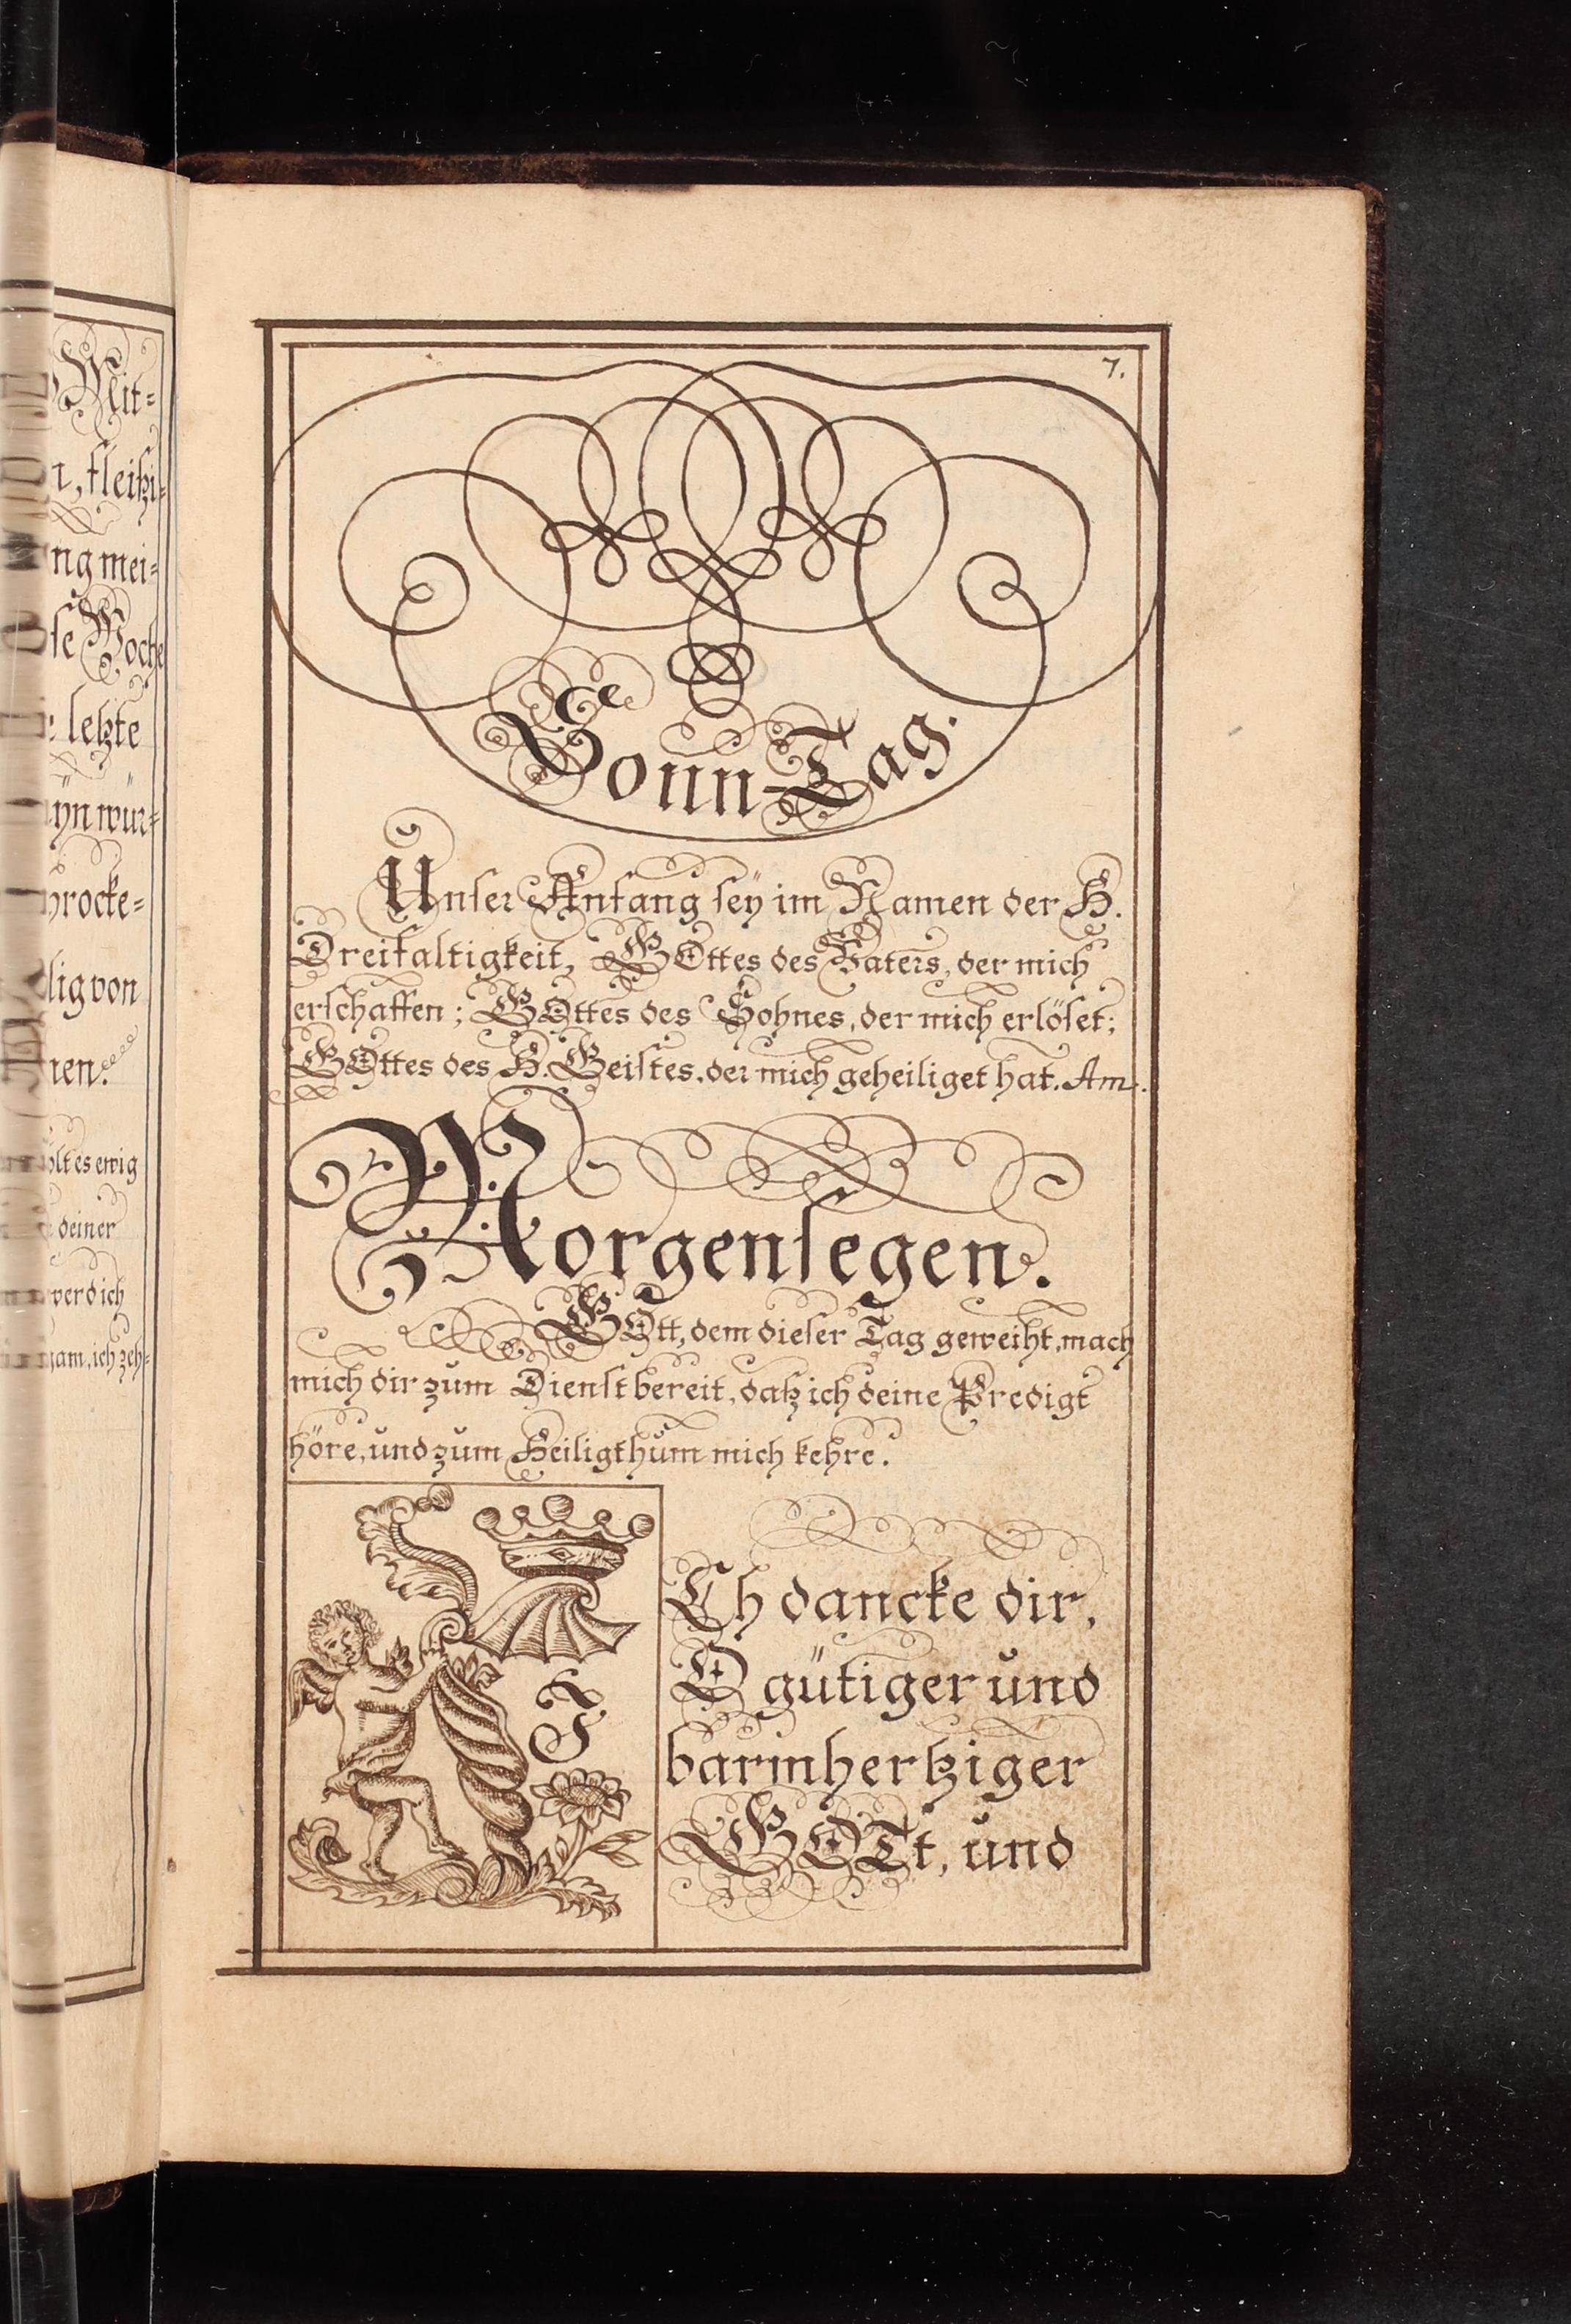 Mit-
fleißi-
ng mei-
se Woche
letzte
ÿn wür-
brocke-
lig von
nen.
ölt es ewig
deiner
werd ich
gam, ich zeh-
7.
Sonn-Tag.
Unser Anfang seÿ im Namen der H.
Dreifaltigkeit, GOttes des Vaters, der mich
erschaffen; GOttes des Sohnes, der mich erlöset;
GOttes des H. Geistes, der mich geheiliget hat. Am.
Morgensegen.
GOtt, dem dieser Tag geweiht, mach
mich dir zum Dienst bereit, daß ich deine Predigt
höre, und zum Heiligthum mich kehre.
I
Ch dancke dir,
O gütiger und
barmhertziger
GOTt, und